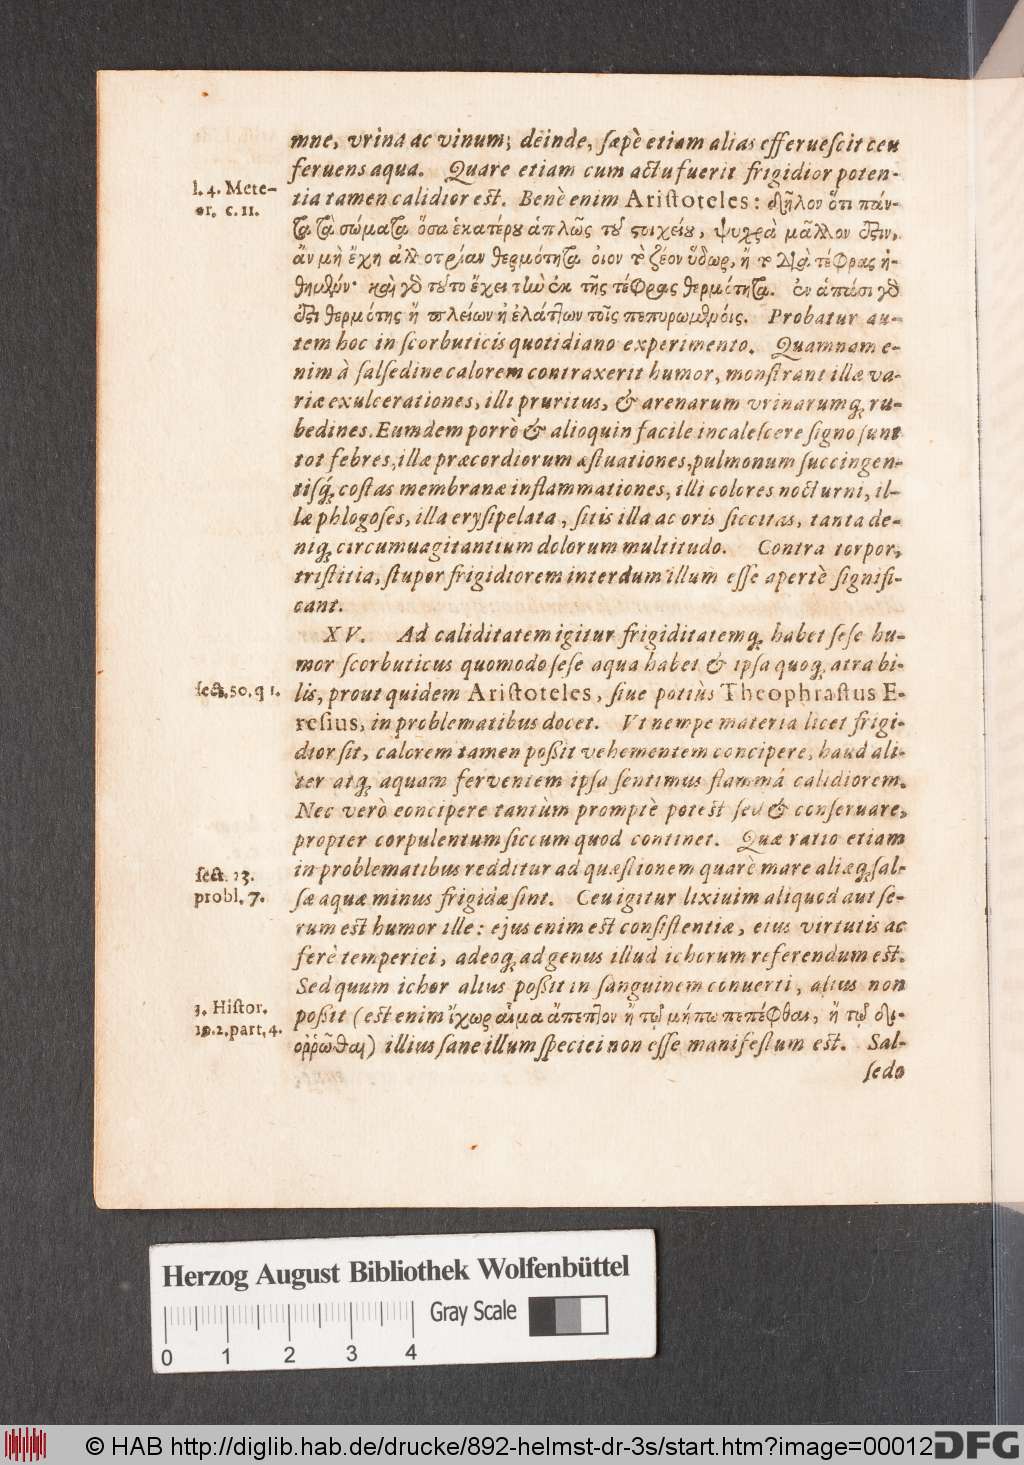 mne, vrina ac vinum; deinde, ſæpè etiam alias efferueſcit ceu
feruens aqua. Quare etiam cum actu fuerit frigidior poten-
l. 4. Mete-
or. c. 11.
tia tamen calidior est. Benè enim Ariſtoteles: δῆλον ὅτι πάν-
τα τὰ σώματα ὅσα ἑκατέρου ἁπλῶς τοῦ στοιχείου, ψυχρὰ μᾶλλον ἐστιν,
ἂν μὴ ἔχη ἀλλοτρίαν θερμότητα οἷον τὸ ζέον ὕδωρ, ἢ τὸ διὰ τέφρας ἠ-
θημένον· καὶ γὰρ τοῦτο ἔχει τὴν ἐκ τῆς τέφρας θερμότητα. ἐν ἅπασι γὰρ
ἐστι θερμότης ἢ πλείων ἢ ἐλάττων τοῖς πεπυρωμένοις. Probatur au-
tem hoc in ſcorbuticis quotidiano experimento. Quamnam e-
nim à ſalſedine calorem contraxerit humor, monſtrant illæ va-
riæ exulcerationes, illi pruritus, & arenarum vrinarumq; ru-
bedines. Eumdem porrò & alioquin facile incaleſcere ſigno ſunt
tot febres, illæ præcordiorum æſtuationes, pulmonum ſuccingen-
tiſq; coſtas membranæ inflammationes, illi colores nocturni, il-
læ phlogoſes, illa eryſipelata, ſitis illa ac oris ſiccitas, tanta de-
niq; circumuagitantium dolorum multitudo. Contra torpor,
triſtitia, ſtupor frigidiorem interdum illum eſſe apertè ſignifi-
cant.
XV. Ad caliditatem igitur frigiditatemq; habet ſeſe hu-
mor ſcorbuticus quomodo ſeſe aqua habet & ipſa quoq; atra bi-
ſect. 50. q 1.
lis, prout quidem Ariſtoteles, ſiue potiùs Theophraſtus E-
reſius, in problematibus docet. Vt nempe materia licet frigi-
dior ſit, calorem tamen poßit vehementem concipere, haud ali-
ter atq; aquam ferventem ipſa ſentimus flammá calidiorem.
Nec verò eoncipere tantùm promptè potest ſed & conſeruare,
propter corpulentum ſiccum quod continet. Quæ ratio etiam
ſect. 23.
probl. 7.
in problematibus redditur ad quæſtionem quarè mare aliæq; ſal-
ſæ aquæ minus frigidæ ſint. Ceu igitur lixiuim aliquod aut ſe-
rum est humor ille: ejus enim est conſiſtentiæ, eius virtutis ac
ferè temperiei, adeoq; ad genus illud ichorum referendum est.
Sed quum ichor alius poßit in ſanguinem conuerti, alius non
3. Hiſtor.
19. 2. part, 4.
poßit (est enim ἴχωρ αἷμα ἄπεπτον ἢ τῷ μήπω πεπέφθαι, ἢ τῷ δι-
οῤῥῶσθαι) illius ſane illum ſpeciei non eſſe manifeſtum est. Sal-
ſedo
Herzog August Bibliothek Wolfenbüttel
Gray Scale
0 1 2 3 4
© HAB http://diglib.hab.de/drucke/892-helmst-dr-3s/start.htm?image=00012
DFG